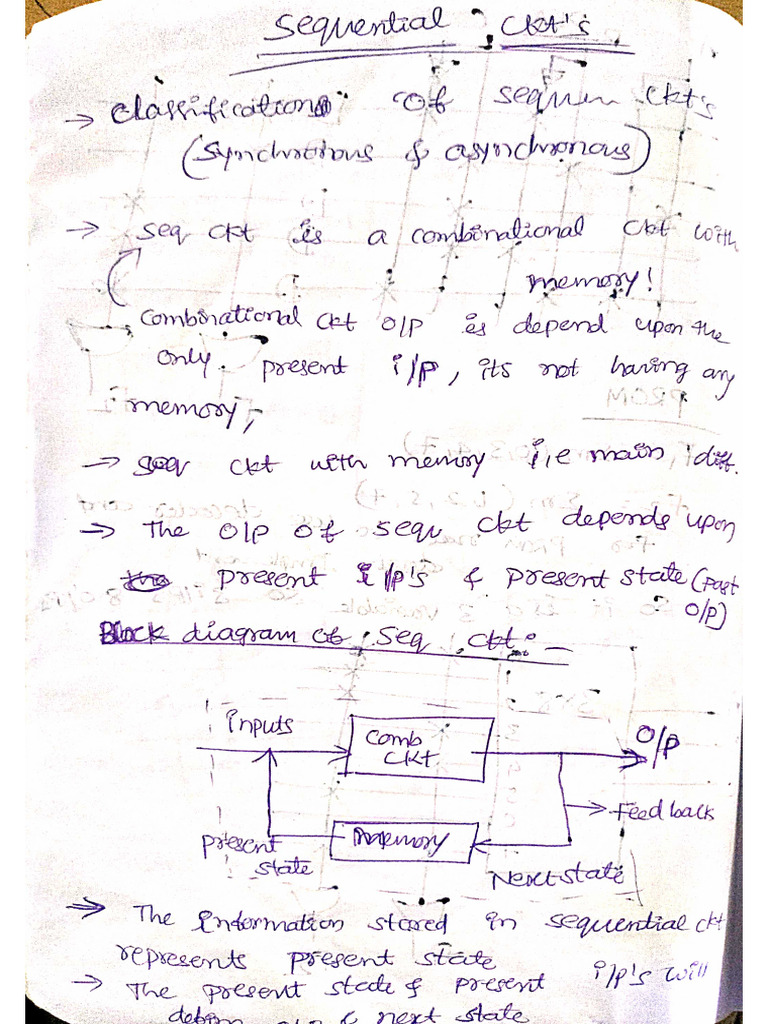 Sequential Ckt's
→ Classification of sequen ckt's
(synchronous & asynchronous)
→ seq ckt is a combinational ckt with
memory!
Combinational ckt o/p is depend upon the
only present i/p, its not having any
memory,
→ seq ckt with memory i,e main diff.
→ The o/p of sequ ckt depends upon
present i/p's & present state (past
o/p)
Block diagram of seq ckt:-
inputs
Comb
ckt
O/P
Feed back
memory
present
state
Next state
→ The information stored in sequential ckt
represents present state
→ The present state & present i/p's will
& next state